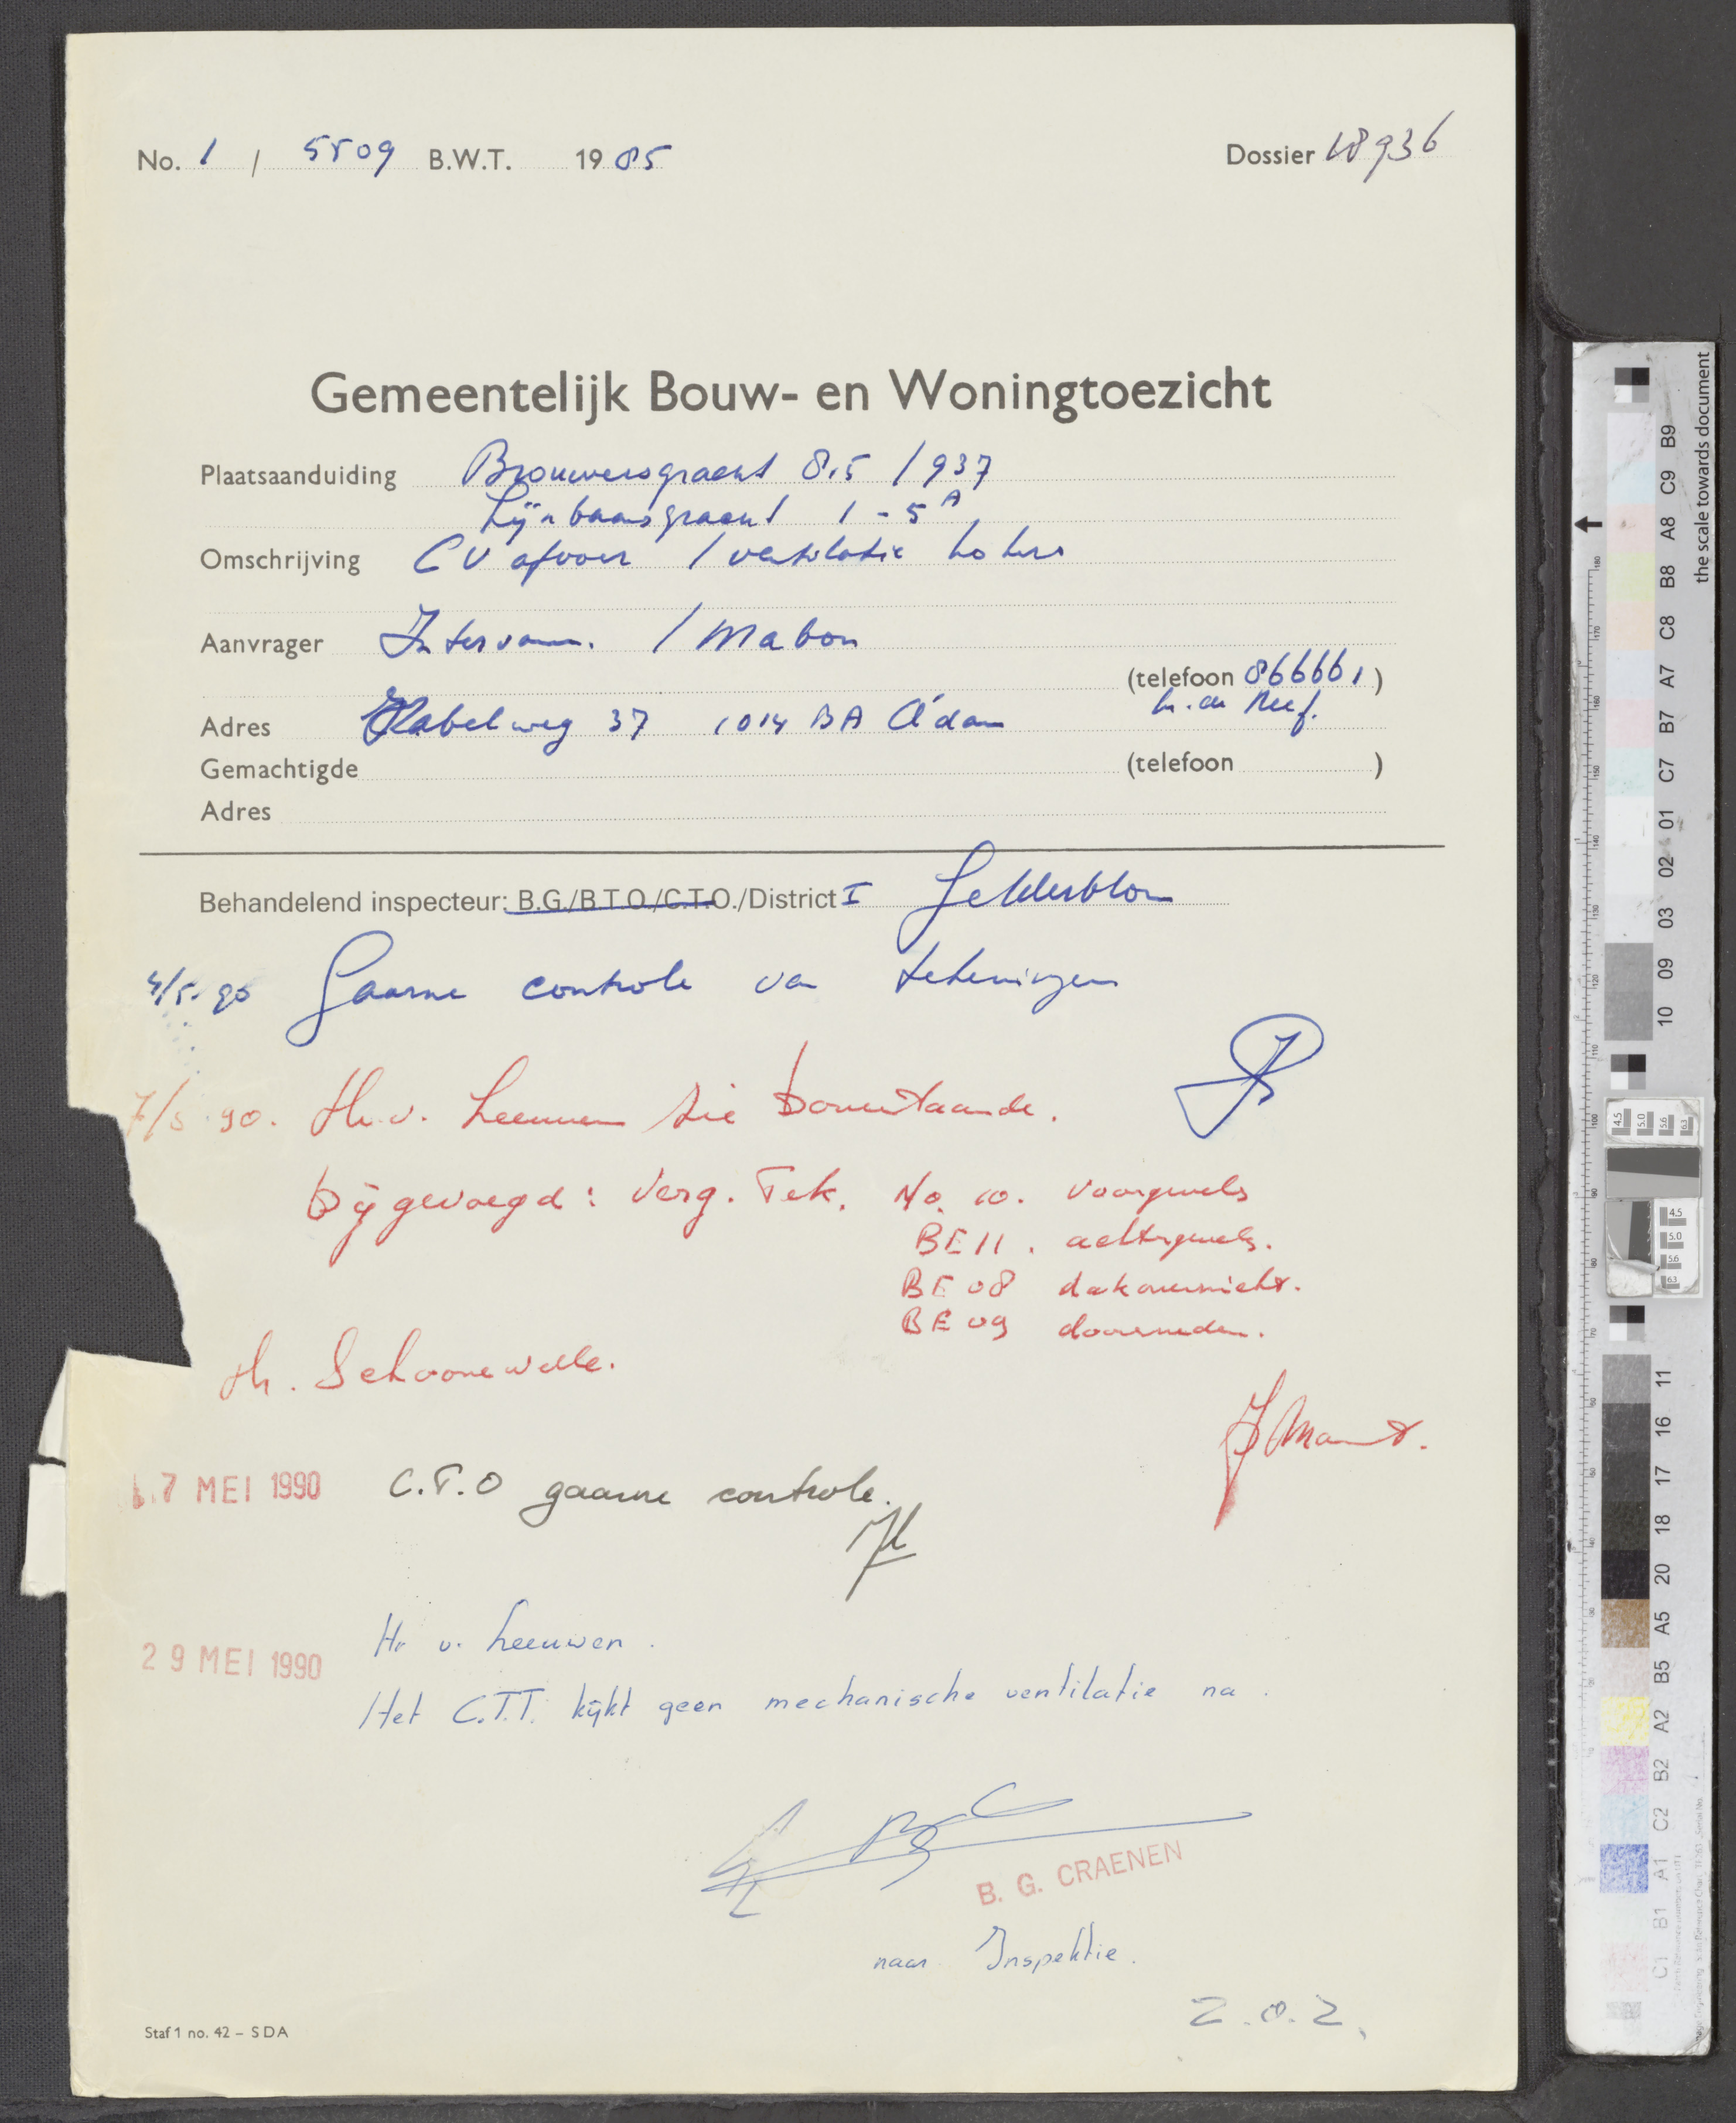 No. 1 / 5509 B.W.T. 1985 Dossier 18936
Gemeentelijk Bouw- en Woningtoezicht
Plaatsaanduiding Brouwersgracht 815 / 937
Lijnbaansgracht 1 - 5 A
Omschrijving CV afvoer / ventilatie kokers
Aanvrager Intervam. / Mabon
(telefoon 866661)
Adres Kabelweg 37 1014 BA A'dam
Gemachtigde (telefoon )
Adres
Behandelend inspecteur: B.G./B.T.O./C.T.O./District I Gelderblom
4/5-90 Gaarne controle van tekeningen
7/5-90. Hr. v. Leeuwen zie bovenstaande.
Bijgevoegd: Verg. Tek. No. 10. voorgevels
BE 11. achtergevels.
BE 08 dakoverzicht.
BE 09 doorsneden.
Hr. Schoonewelle.
17 MEI 1990 C.T.O gaarne controle.
29 MEI 1990 Hr v. Leeuwen.
Het C.T.T. kijkt geen mechanische ventilatie na.
B. G. CRAENEN
naar Inspektie.
Z.O.Z.
Staf 1 no. 42 – SDA
the scale towards document
B9
C9
A8
B8
C8
A7
B7
C7
01
02
03
09
10
11
16
17
18
20
A5
B5
A2
B2
C2
A1
B1
C1